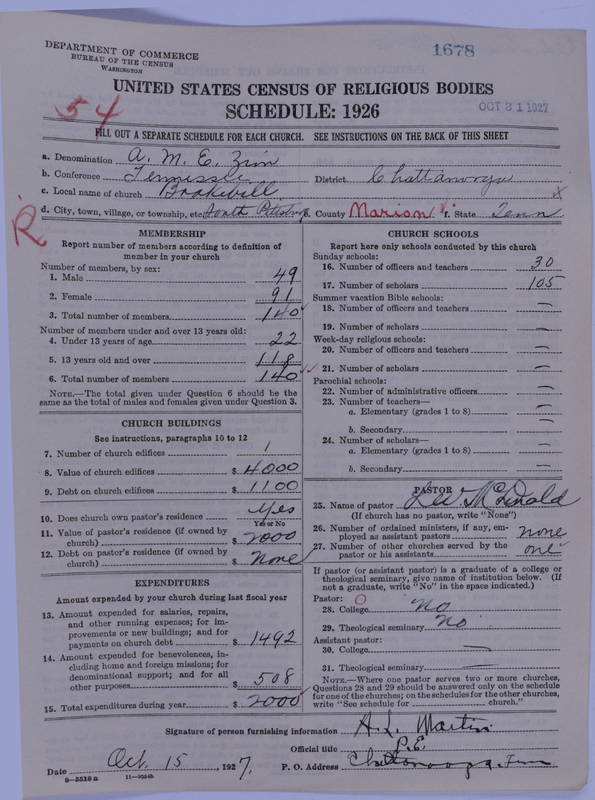 1678
DEPARTMENT OF COMMERCE
BUREAU OF THE CENSUS
WASHINGTON
UNITED STATES CENSUS OF RELIGIOUS BODIES
SCHEDULE: 1926
OCT 31 1927
54
FILL OUT A SEPARATE SCHEDULE FOR EACH CHURCH. SEE INSTRUCTIONS ON THE BACK OF THIS SHEET
a. Denomination A. M. E. Zion
b. Conference Tennissee District Chattanooga
c. Local name of church
d. City, town, village, or township, etc. South Pittsburg e. County Marion f. State Tenn
R
MEMBERSHIP
Report number of members according to definition of
member in your church
Number of members, by sex:
1. Male 49
2. Female 91
3. Total number of members 140
Number of members under and over 13 years old:
4. Under 13 years of age 22
5. 13 years old and over 118
6. Total number of members 140
NOTE.—The total given under Question 6 should be the
same as the total of males and females given under Question 3.
CHURCH BUILDINGS
See instructions, paragraphs 10 to 12
7. Number of church edifices 1
8. Value of church edifices $ 4000
9. Debt on church edifices $ 1100
10. Does church own pastor's residence? Yes
Yes or No
11. Value of pastor's residence (if owned by
church) $ 2000
12. Debt on pastor's residence (if owned by
church) $ None
EXPENDITURES
Amount expended by your church during last fiscal year
13. Amount expended for salaries, repairs,
and other running expenses; for im-
provements or new buildings; and for
payments on church debt $ 1492
14. Amount expended for benevolences, in-
cluding home and foreign missions; for
denominational support; and for all
other purposes $ 508
15. Total expenditures during year $ 2000
CHURCH SCHOOLS
Report here only schools conducted by this church
Sunday schools:
16. Number of officers and teachers 30
17. Number of scholars 105
Summer vacation Bible schools:
18. Number of officers and teachers —
19. Number of scholars —
Week-day religious schools:
20. Number of officers and teachers —
21. Number of scholars —
Parochial schools:
22. Number of administrative officers —
23. Number of teachers—
a. Elementary (grades 1 to 8) —
b. Secondary —
24. Number of scholars—
a. Elementary (grades 1 to 8) —
b. Secondary —
PASTOR
25. Name of pastor McDonald
(If church has no pastor, write "None")
26. Number of ordained ministers, if any, em-
ployed as assistant pastors none
27. Number of other churches served by the
pastor or his assistants one
If pastor (or assistant pastor) is a graduate of a college or
theological seminary, give name of institution below. (If
not a graduate, write "No" in the space indicated.)
Pastor: O
28. College No
29. Theological seminary No
Assistant pastor:
30. College —
31. Theological seminary —
NOTE.—Where one pastor serves two or more churches,
Questions 28 and 29 should be answered only on the schedule
for one of the churches; on the schedules for the other churches,
write "See schedule for ______ church."
Signature of person furnishing information A. L. Martin
Official title P. E.
Date Oct. 15, 1927. P. O. Address Chattanooga, Tenn
8-5518a